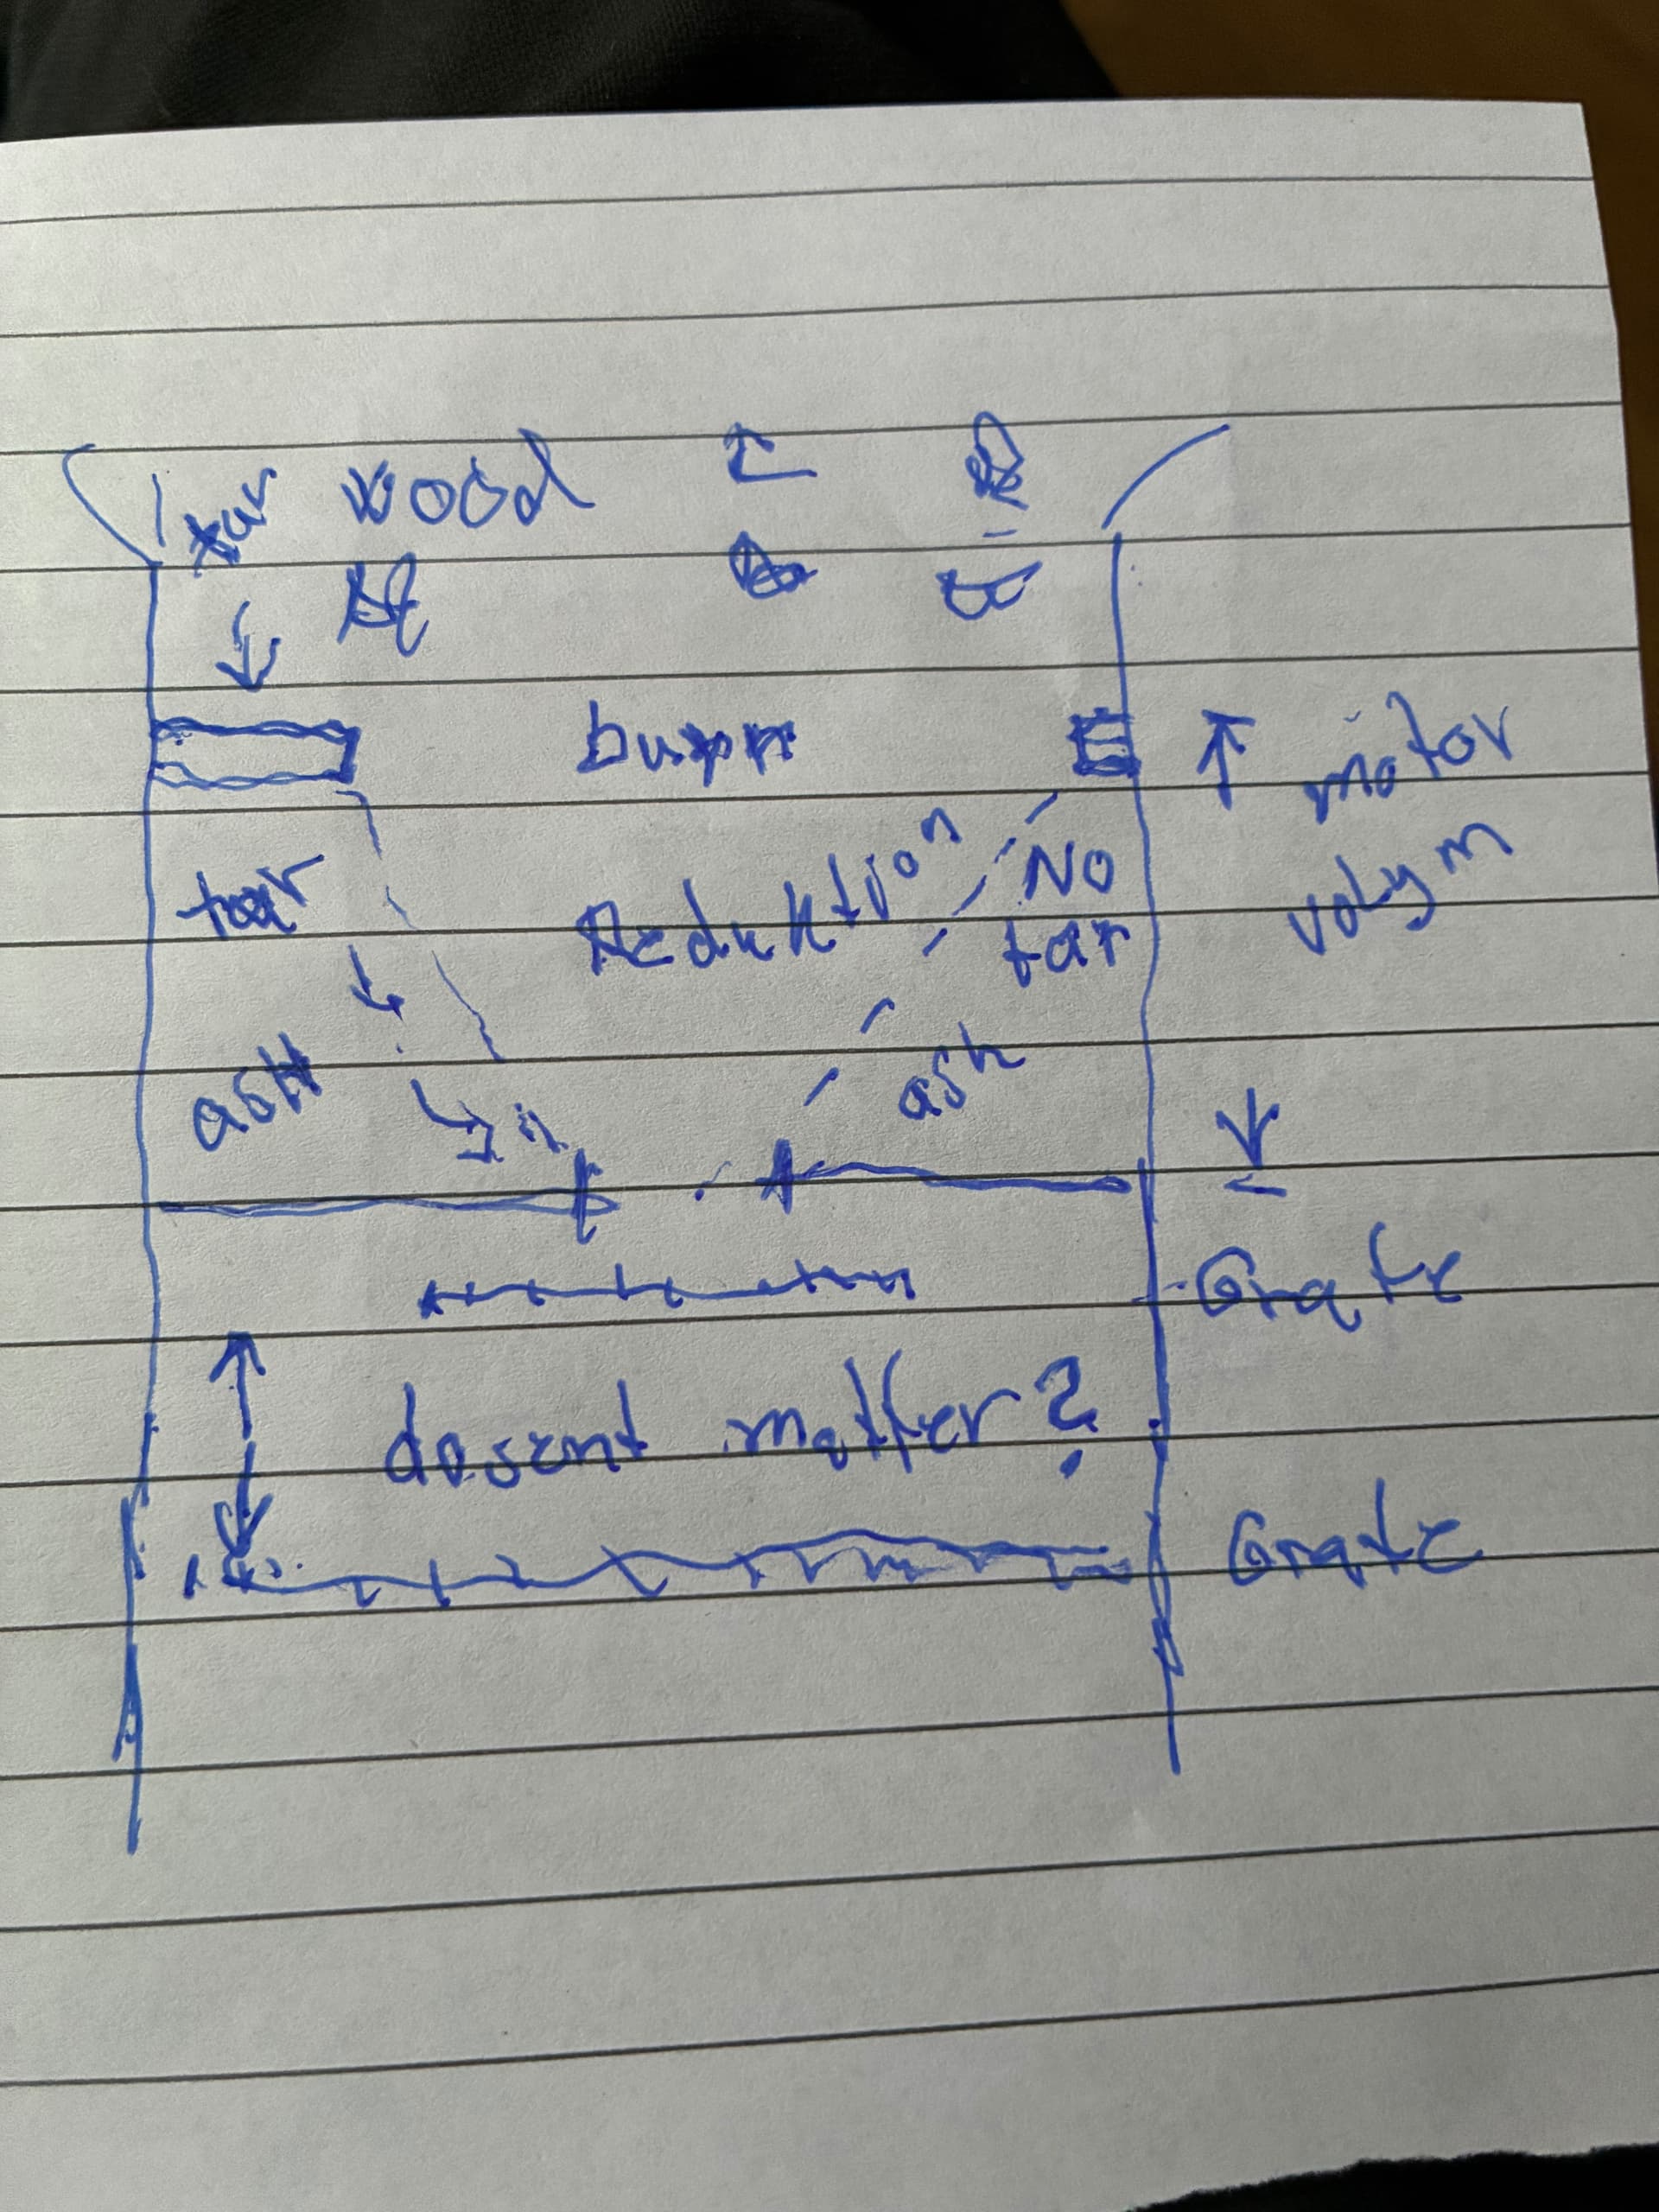 tar wood
burn
motor
volym
tar Reduktion No
tar
asH ash
Grate
dosent matter?
Grate